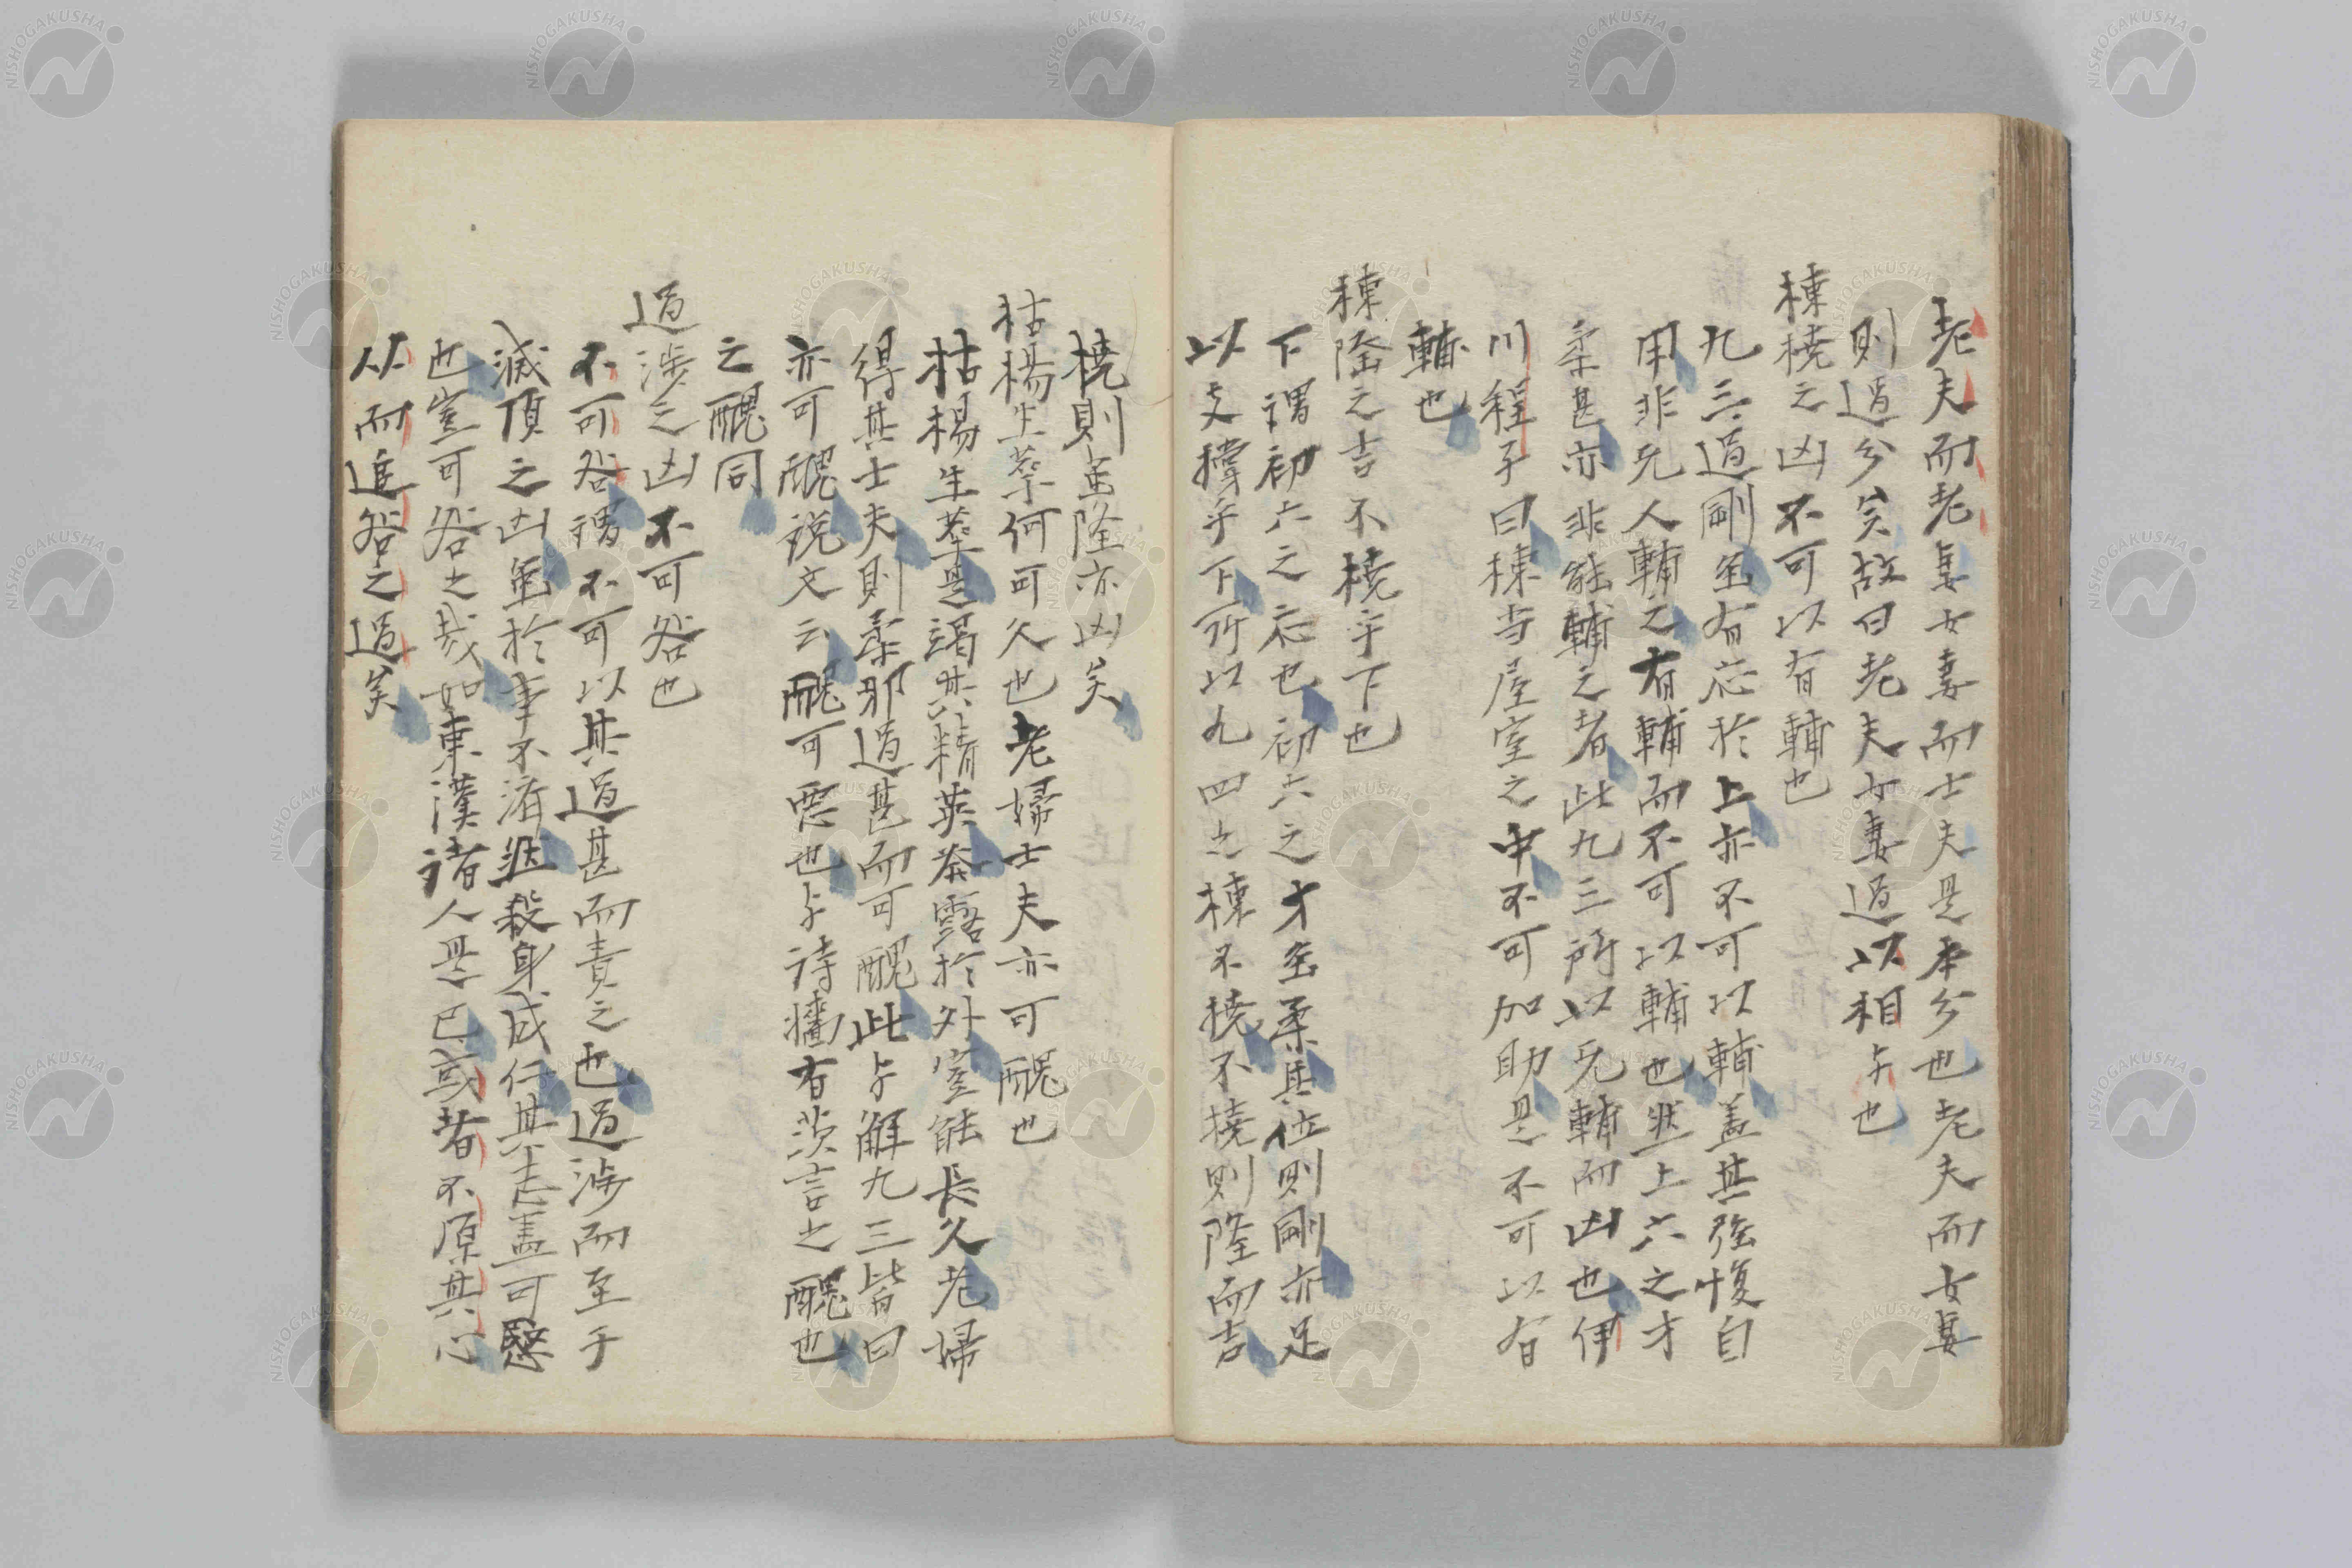 老夫而老妻女妻而士夫是本分也老夫而女妻
則過分矣故曰老夫女妻過以相与也
棟橈之凶不可以有輔也
九三過剛虽有応於上亦不可以輔盖其强愎自
用非无人輔之有輔而不可以輔也 然上六之才
柔甚亦非能輔之者此九三所以无輔而凶也伊
川程子曰棟当屋室之中不可加助是不可以有
輔也
棟隆之吉不橈乎下也
下謂初六之応也初六之才虽柔其位則剛亦足
以支撐乎下所以九四之棟不橈不橈則隆而吉
橈則虽隆亦凶矣
枯楊生華何可久也老婦士夫亦可醜也
枯楊生華是竭其精英発露於外豈能長久老婦
得其士夫則柔邪過甚而可醜此与解九三皆曰
亦可醜説文云醜可惡也与詩牆有茨言之醜也
之醜同
過渉之凶不可咎也
不可咎謂不可以其過甚而責之也過渉而至于
滅頂之凶虽於事不済然殺身成仁其志盖可愍
也豈可咎之哉如東漢諸人是已或者不原其心
从而追咎之過矣
NISHOGAKUSHA